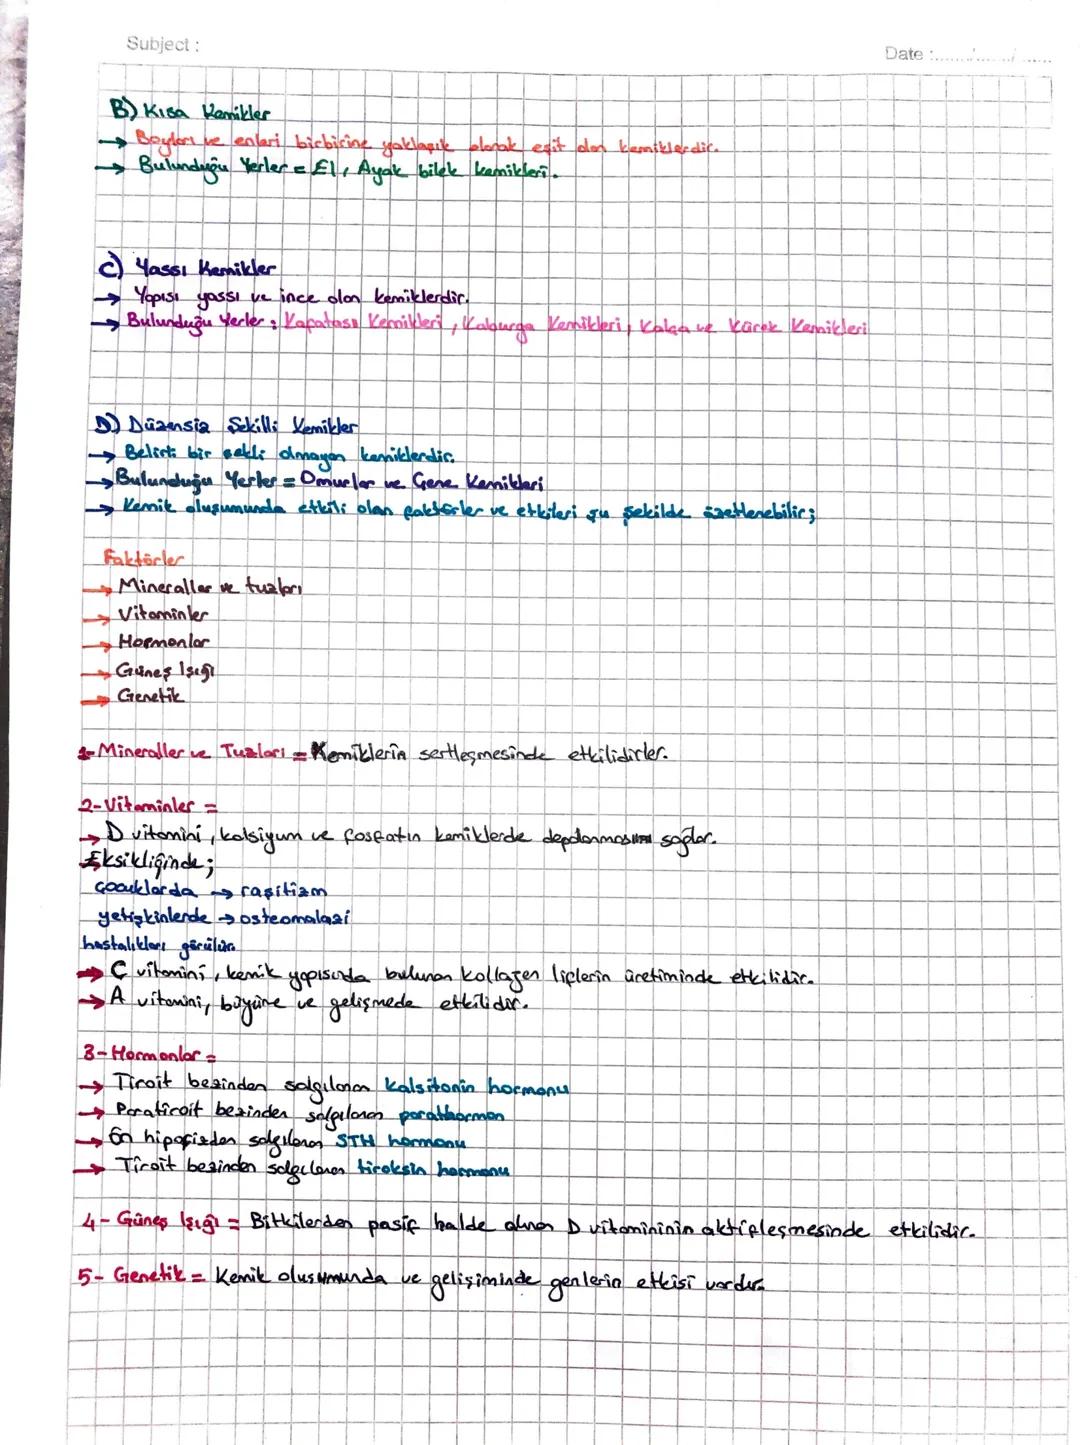 Subject :
Date :......./......./.......
B) Kısa Kemikler
→ Boyları ve enleri birbirine yaklaşık olarak eşit olan kemiklerdir.
→ Bulunduğu Yerler = El, Ayak bilek kemikleri.
C) Yassı Kemikler
→ Yapısı yassı ve ince olan kemiklerdir.
→ Bulunduğu Yerler : Kafatası Kemikleri, Kaburga Kemikleri, Kalça ve Kürek Kemikleri
D) Düzensiz Şekilli Kemikler
→ Belirti bir şekli olmayan kemiklerdir.
→ Bulunduğu Yerler = Omurlar ve Çene Kemikleri
→ Kemik oluşumunda etkili olan faktörler ve etkileri şu şekilde özetlenebilir;
Faktörler
→ Mineraller ve tuzları
→ Vitaminler
→ Hormonlar
→ Güneş Işığı
→ Genetik
1- Mineraller ve Tuzları = Kemiklerin sertleşmesinde etkilidirler.
2- Vitaminler =
→ D vitamini, kalsiyum ve fosfatın kemiklerde depolanmasını sağlar.
Eksikliğinde;
çocuklarda → raşitizm
yetişkinlerde → osteomalazi
hastalıkları görülür.
→ C vitamini, kemik yapısında bulunan kollagen liflerin üretiminde etkilidir.
→ A vitamini, büyüme ve gelişmede etkilidir.
3- Hormonlar =
→ Tiroit bezinden salgılanan kalsitonin hormonu
→ Paratiroit bezinden salgılanan parathormon
→ Ön hipofizden salgılanan STH hormonu
→ Tiroit bezinden salgılanan tiroksin hormonu
4- Güneş Işığı = Bitkilerden pasif halde alınan D vitamininin aktifleşmesinde etkilidir.
5- Genetik = Kemik oluşumunda ve gelişiminde genlerin etkisi vardır.